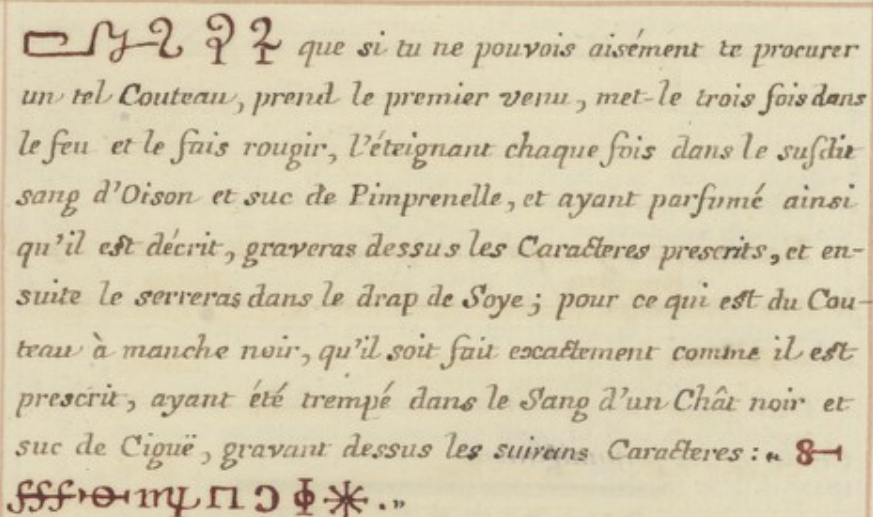 que si tu ne pouvois aisément te procurer
un tel Couteau, prend le premier venu, met-le trois fois dans
le feu et le fais rougir, l'éteignant chaque fois dans le suſdit
sang d'Oison et suc de Pimprenelle, et ayant parfumé ainsi
qu'il est décrit, graveras dessus les Caracteres prescrits, et en-
suite le serreras dans le drap de Soye ; pour ce qui est du Cou-
teau à manche noir, qu'il soit fait exactement comme il est
prescrit, ayant été trempé dans le Sang d'un Chât noir et
suc de Ciguë, gravant dessus les suivans Caracteres : „
."